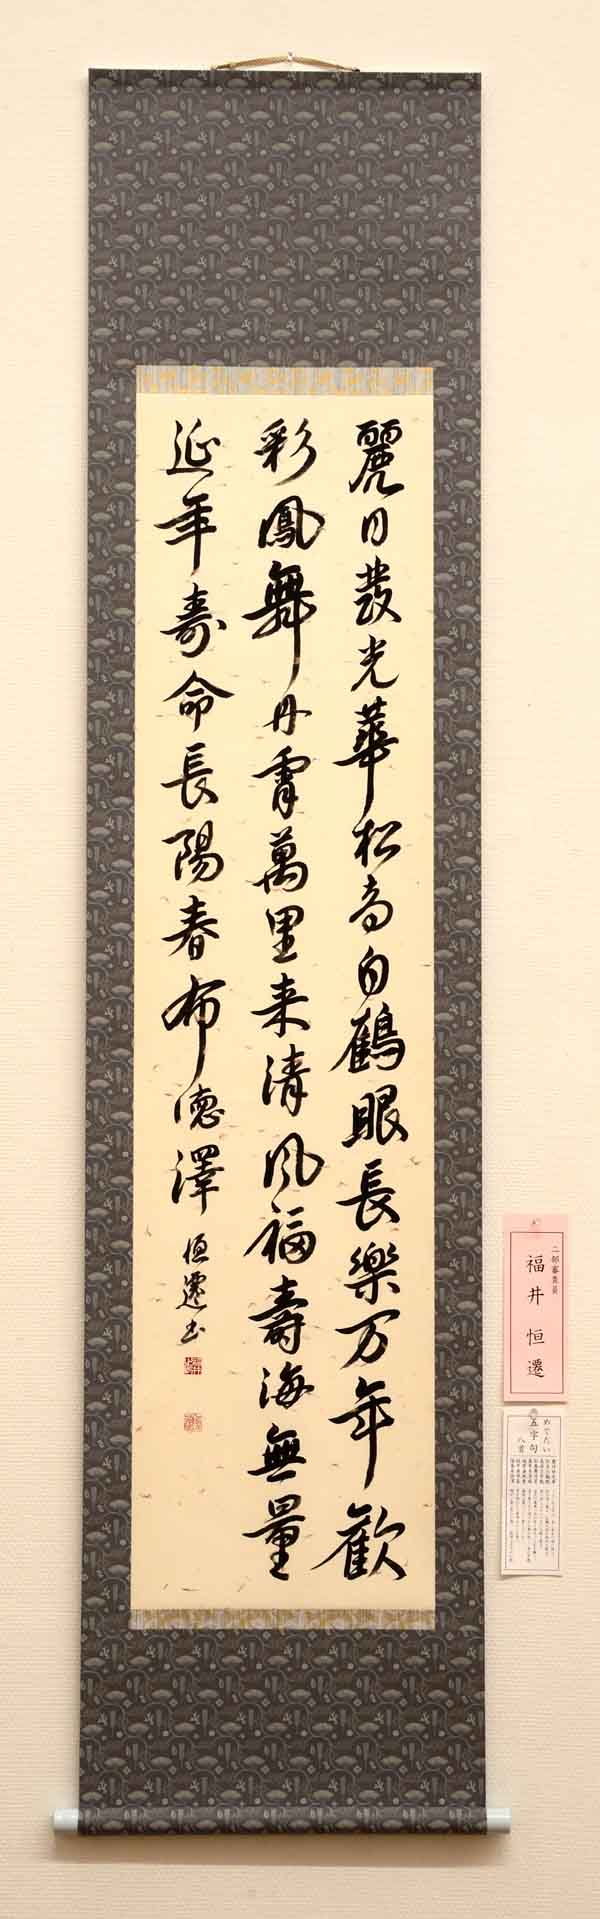 麗日發光華松高白鶴眠長樂万年歡
彩鳳舞丹霄萬里来清風福壽海無量
延年寿命長陽春布徳澤
恒遷書
二部審査員
福井 恒遷
めでたい
五字句
八首